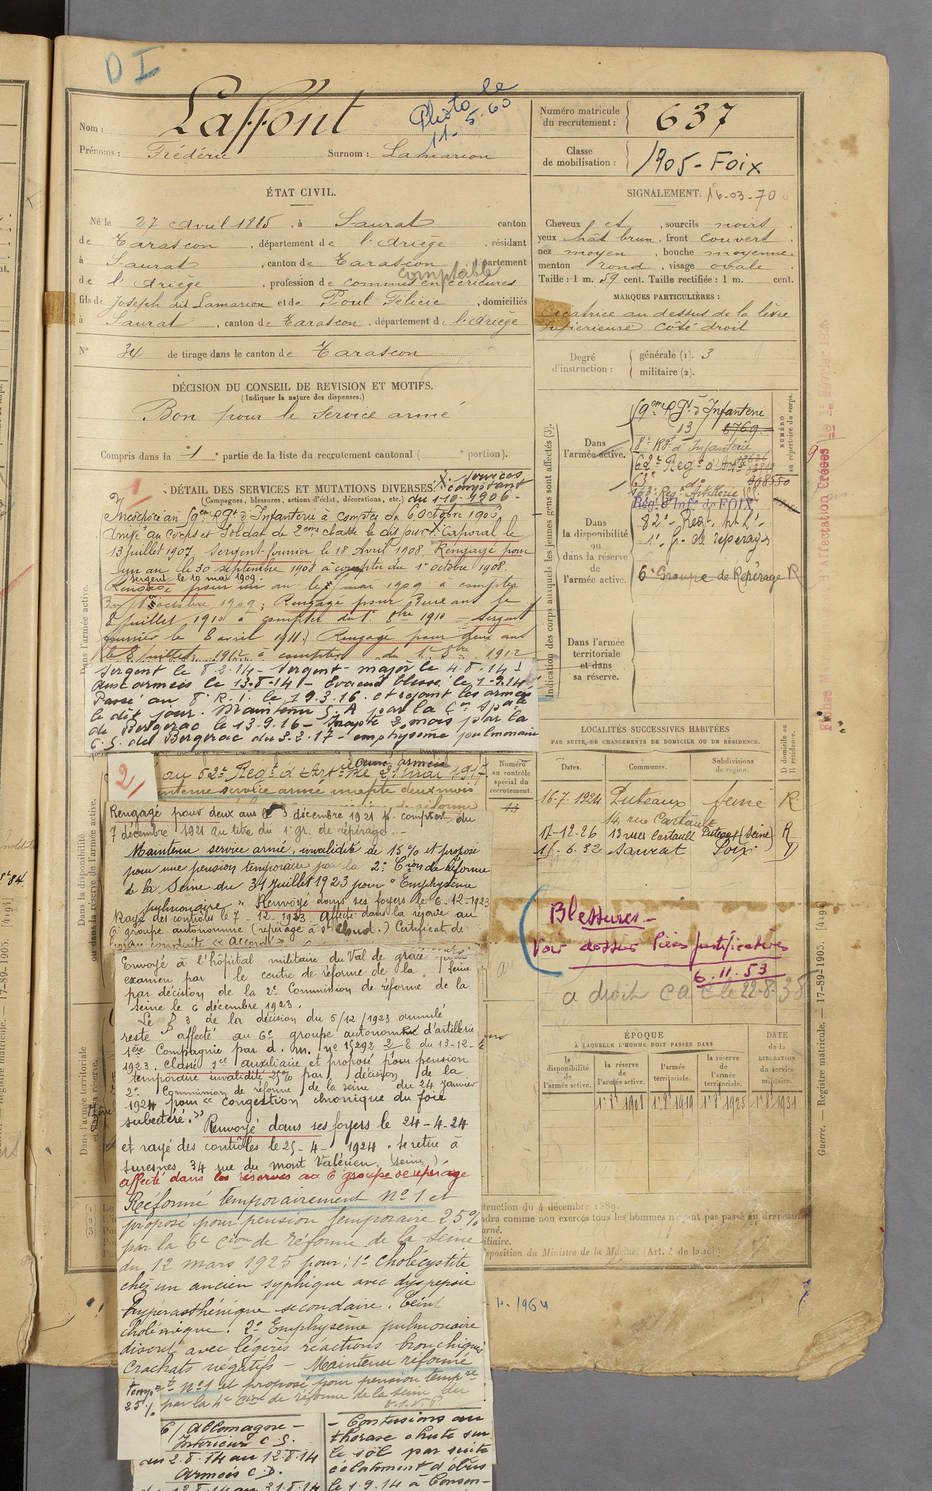 D I
Nom : Laffont
Photo le
11-5-60
Prénoms : Frédéric Surnom : Lamarion
Numéro matricule
du recrutement : 637
Classe
de mobilisation : 1905 - Foix
ÉTAT CIVIL.
Né le 27 Avril 1885, à Saurat canton
de Tarascon, département de l'Ariège, résidant
à Saurat, canton de Tarascon, département
comptable
de l'Ariège, profession de commis en écritures
fils de Joseph dit Lamarion et de Poul Félicie, domiciliés
à Saurat, canton de Tarascon, département de l'Ariège
N° 34 de tirage dans le canton de Tarascon
SIGNALEMENT. 16-03-70
Cheveux et, sourcils noirs
yeux chât brun, front couvert
nez moyen, bouche moyenne
menton rond, visage ovale
Taille : 1 m. 59 cent. Taille rectifiée : 1 m. cent.
MARQUES PARTICULIÈRES :
Cicatrice au dessus de la lèvre
supérieure côté droit
Degré
d'instruction :
générale (1). 3
militaire (2).
DÉCISION DU CONSEIL DE REVISION ET MOTIFS.
(Indiquer la nature des dispenses.)
Bon pour le service armé
Compris dans la 1 partie de la liste du recrutement cantonal ( portion).
DÉTAIL DES SERVICES ET MUTATIONS DIVERSES
(Campagnes, blessures, actions d'éclat, décorations, etc.)
X services
comptant
du 1-10-1906 -
1
Incorporé au 59eme Rgt d'Infanterie à compter du 6 octobre 1906
Arrivé au corps et Soldat de 2eme classe le dit jour. Caporal le
13 juillet 1907. Sergent fourrier le 18 Avril 1908. Rengagé pour
un an le 30 septembre 1908 à compter du 1er octobre 1908.
Sergent le 19 mai 1909.
Rengagé pour un an le mai 1909 à compter
du 1er octobre 1909; Rengagé pour deux ans le
juillet 1910 à compter du 1er 8bre 1910 - Sergent
fourrier le 6 avril 1911. Rengagé pour deux ans
le 2 juillet 1912 à compter du 1er 8bre 1912
Sergent le 8-2-14 - Sergent-major le 4.8.14
aux armées le 13-8-14 - Evacué blessé le 1-9-14
Passé au 8e R.I. le 19.3.16. et rejoint les armées
le dit jour. Maintenu S.A par la Con Spale
de Bergerac le 13-9-16 - Inapte 2 mois par la
C.S. de Bergerac du 3-2-17 - emphysème pulmonaire
Dans
l'armée active.
59eme Rgt d'Infanterie
8e Rgt d'Infanterie
Rég. d'Inf. de FOIX
Dans
la disponibilité
ou
dans la réserve
de
l'armée active.
82e Reg. Art. L.
1er g. de repérages
6e Groupe de Repérage R
Dans l'armée
territoriale
et dans
sa réserve.
Indication des corps auxquels les jeunes gens sont affectés (3).
NUMÉRO
au répertoire du corps.
Dans l'armée active.
LOCALITÉS SUCCESSIVES HABITÉES
PAR SUITE DE CHANGEMENTS DE DOMICILE OU DE RÉSIDENCE.
Dates. Communes. Subdivisions
de région. D domicile ou
R résidence.
16-7-1924 Puteaux Seine R
14, rue Cartault
17-12-26 13 rue Cartault Puteaux (Seine) R
15-6-32 Saurat Foix D
2
au 52e Reg. d'Art. le 21 mai 1917
Numéro
au contrôle
spécial du
recrutement.
Rengagé pour deux ans le 3 décembre 1921 à compter du
7 décembre 1921 au titre du 1er gr. de repérage.
Maintenu service armé, invalidité de 15 % et proposé
pour une pension temporaire par la 2e Con de Réforme
de la Seine du 31 juillet 1923 pour "Emphysème
pulmonaire" Renvoyé dans ses foyers le 6-12-1923
Rayé des contrôles le 7-12-1923. Affecté dans la réserve au
6e groupe autonome (repérage à St Cloud.) Certificat de
bonne conduite "Accordé"
Envoyé à l'hôpital militaire du Val de grâce pour
examen par le centre de réforme de la Seine
par décision de la 2e Commission de réforme de la
Seine le 6 décembre 1923.
Le § 3 de la décision du 5/12/1923 annulé
reste affecté au 6e groupe autonome d'artillerie
1ère Compagnie par d. m. n° 15292 2/8 du 13-12-
1923. Classé 1er auxiliaire et proposé pour pension
temporaire invalidité 25 % par décision de la
2e Commission de réforme de la Seine du 24 janvier
1924 pour "congestion chronique du foie
subictère." Renvoyé dans ses foyers le 24-4-24
et rayé des contrôles le 25-4-1924. Se retire à
Suresnes, 34 rue du mont Valérien. (Seine) -
Affecté dans les réserves au 6 groupe de repérage
Réformé temporairement N° 1 et
proposé pour pension temporaire 25 %
par la 6e Cion de Réforme de la Seine
du 12 mars 1925 pour : 1° Cholécystite
chez un ancien syphilique avec dyspepsie
hyperasthénique secondaire. Teint
cholémique. 2° Emphysème pulmonaire
discret avec légères réactions bronchiques
Crachats négatifs - Maintenu réformé
tempre N° 1 et proposé pour pension tempre
25 % par la 4e Cion de réforme de la Seine du
Blessures -
Voir dossier Pièces justificatives
6.11.53
a droit C a C le 22-8-38
ÉPOQUE
À LAQUELLE L'HOMME DOIT PASSER DANS
la
disponibilité
de
l'armée active.
la réserve
de
l'armée active.
l'armée
territoriale.
la réserve
de
l'armée
territoriale.
DATE
de la
LIBÉRATION
du
service
militaire.
truction du 4 décembre 1889.
position du Ministre de la Marine. (Art. de la loi)
1964
6/ Allemagne -
Intérieur C.S.
du 2.8.14 au 12.8.14
Armées C.D.
du 13.8.14 au 31.8.14
- Contusions au
thorax chute sur
le sol par suite
éclatement d'obus
le 1.9.14 à
Guerre. — Registre matricule. — 17-89-1905. [4194]